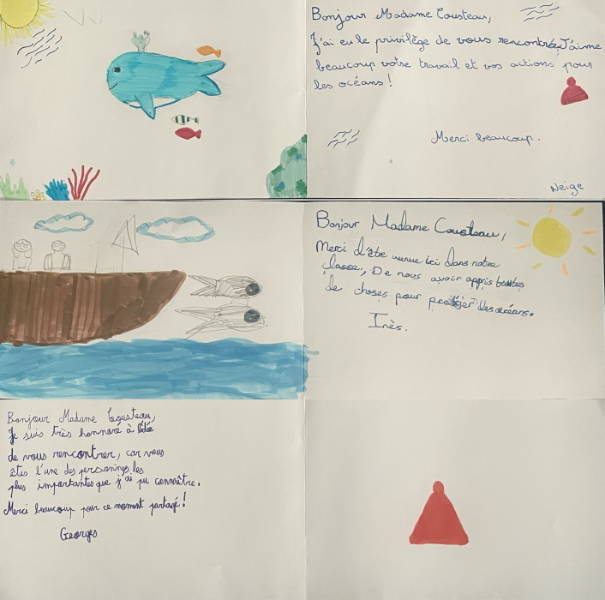 Bonjour Madame Cousteau,
J'ai eu le privilège de vous rencontrée, J'aime
beaucoup votre travail et vos actions pour
les océans !
Merci beaucoup.
Neige
Bonjour Madame Cousteau,
Merci d'être venue ici dans notre
classe, De nous avoir appris toutes
de choses pour protéger les océans.
Inès.
Bonjour Madame Cousteau,
Je suis très honnoré à l'idée
de vous rencontrer, car vous
êtes l'une des personnes les
plus importantes que j'ai pu connaître.
Merci beaucoup pour ce moment partagé !
Georges